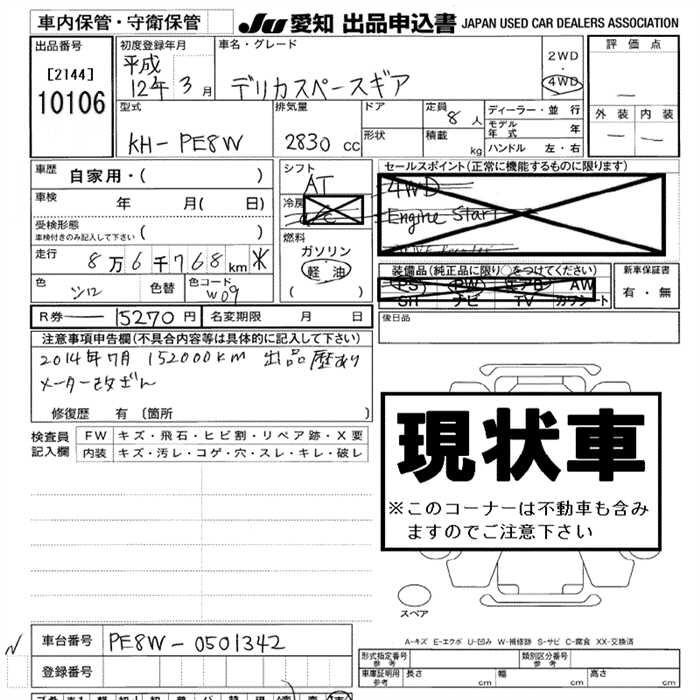 車内保管・守衛保管 JU 愛知 出品申込書 JAPAN USED CAR DEALERS ASSOCIATION
出品番号
[2144]
10106
初度登録年月
平成
12年 3月
車名・グレード
デリカスペースギア
2WD
・
4WD
評価点
—
外装 内装
— —
型式
KH-PE8W
排気量
2830 cc
ドア
形状
定員 8 人
積載 kg
ディーラー・並行
モデル年式 年
ハンドル 左・右
車歴 自家用・( )
車検 年 月( 日)
受検形態
車検付きのみ記入して下さい ( )
走行 8万6千768km ※
色 シロ 色替 色コード W09
シフト
AT
冷房
燃料
ガソリン
・
軽油
( )
セールスポイント(正常に機能するものに限ります)
4WD
Engine Start
装備品(純正品に限り○をつけてください)
PS PW エアB AW
SH ナビ TV カワシート
新車保証書
有・無
R券 15270円 名変期限 月 日
後日品
注意事項申告欄(不具合内容等は具体的に記入して下さい)
2014年7月 152000KM 出品歴あり
メーター改ざん
修復歴 有 [箇所 ]
検査員 FW キズ・飛石・ヒビ割・リペア跡・X要
記入欄 内装 キズ・汚レ・コゲ・穴・スレ・キレ・破レ
現状車
※このコーナーは不動車も含み
ますのでご注意下さい
スペア
A-キズ E-エクボ U-凹み W-補修跡 S-サビ C-腐食 XX-交換済
車台番号 PE8W-0501342
登録番号
形式指定番号
参考
類別区分番号
参考
車庫証明用
参考
長さ cm 幅 cm 高さ cm